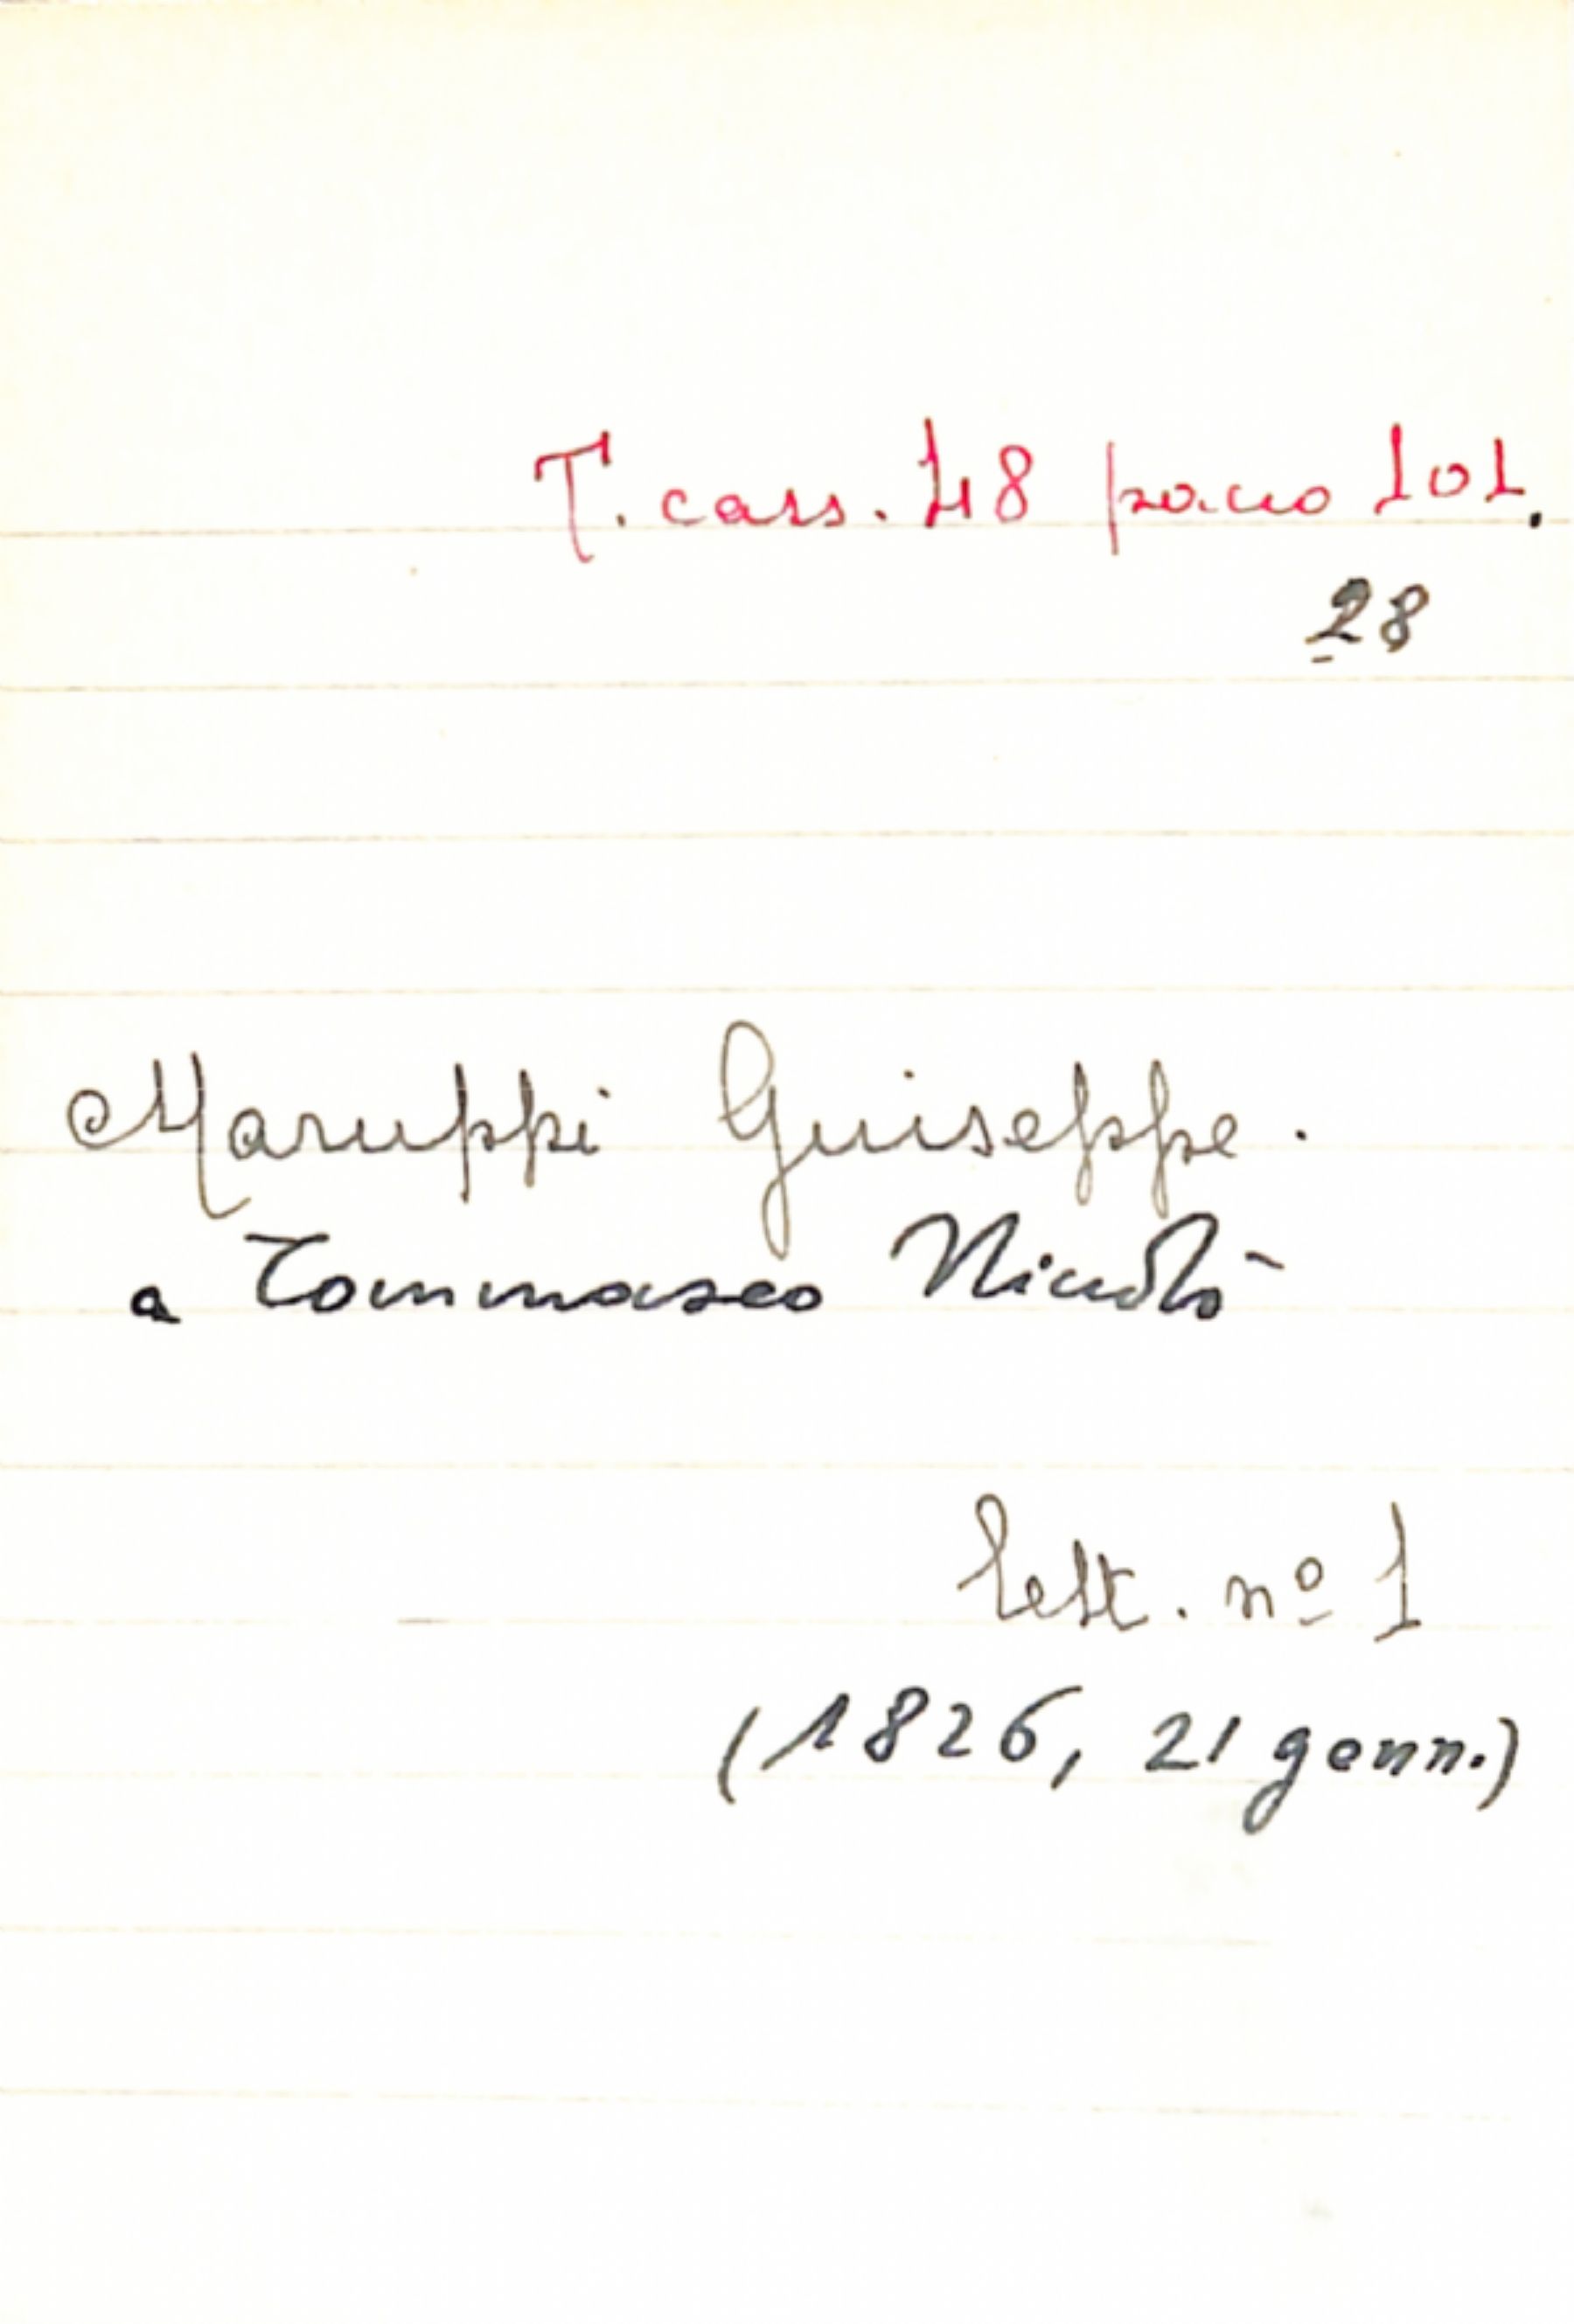 T. cass. 48 pacco 101.
28
Maruppi Giuseppe.
a Tommaseo Niccolò
lett. nº 1
(1826, 21 genn.)